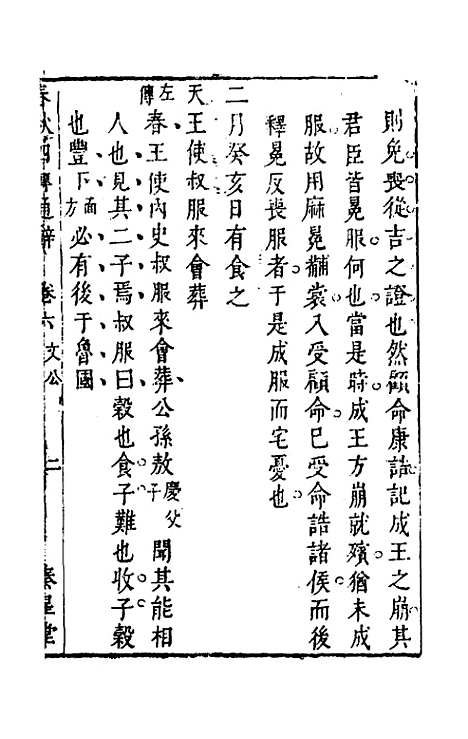 則免喪從吉之證也然顧命康誥記成王之崩其
君臣皆冕服何也當是時成王方崩就殯猶未成
服故用麻冕黼裳入受顧命已受命誥諸侯而後
釋冕反喪服者于是成服而宅憂也
二月癸亥日有食之
天王使叔服來會葬
左傳 春王使內史叔服來會葬公孫敖慶父子聞其能相
人也見其二子焉叔服曰穀也食子難也收子穀
也豐下面方必有後于魯國
春秋四傳通辭 卷六 文公 二